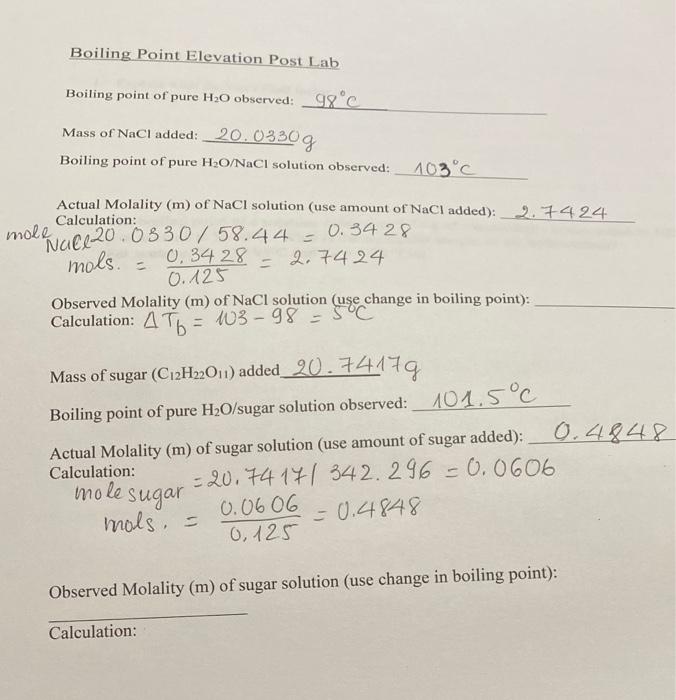 Boiling Point Elevation Post Lab
Boiling point of pure H₂O observed: 98°C
Mass of NaCl added: 20.0330g
Boiling point of pure H₂O/NaCl solution observed: 103°C
Actual Molality (m) of NaCl solution (use amount of NaCl added): 2.7424
Calculation:
mole NaCl 20.0330 / 58.44 = 0.3428
mols. = 0.3428 / 0.125 = 2.7424
Observed Molality (m) of NaCl solution (use change in boiling point):
Calculation: ΔTb = 103 - 98 = 5°C
Mass of sugar (C₁₂H₂₂O₁₁) added 20.7417g
Boiling point of pure H₂O/sugar solution observed: 101.5°C
Actual Molality (m) of sugar solution (use amount of sugar added): 0.4848
Calculation:
mole sugar = 20.7417 / 342.296 = 0.0606
mols. = 0.0606 / 0.125 = 0.4848
Observed Molality (m) of sugar solution (use change in boiling point):
Calculation: